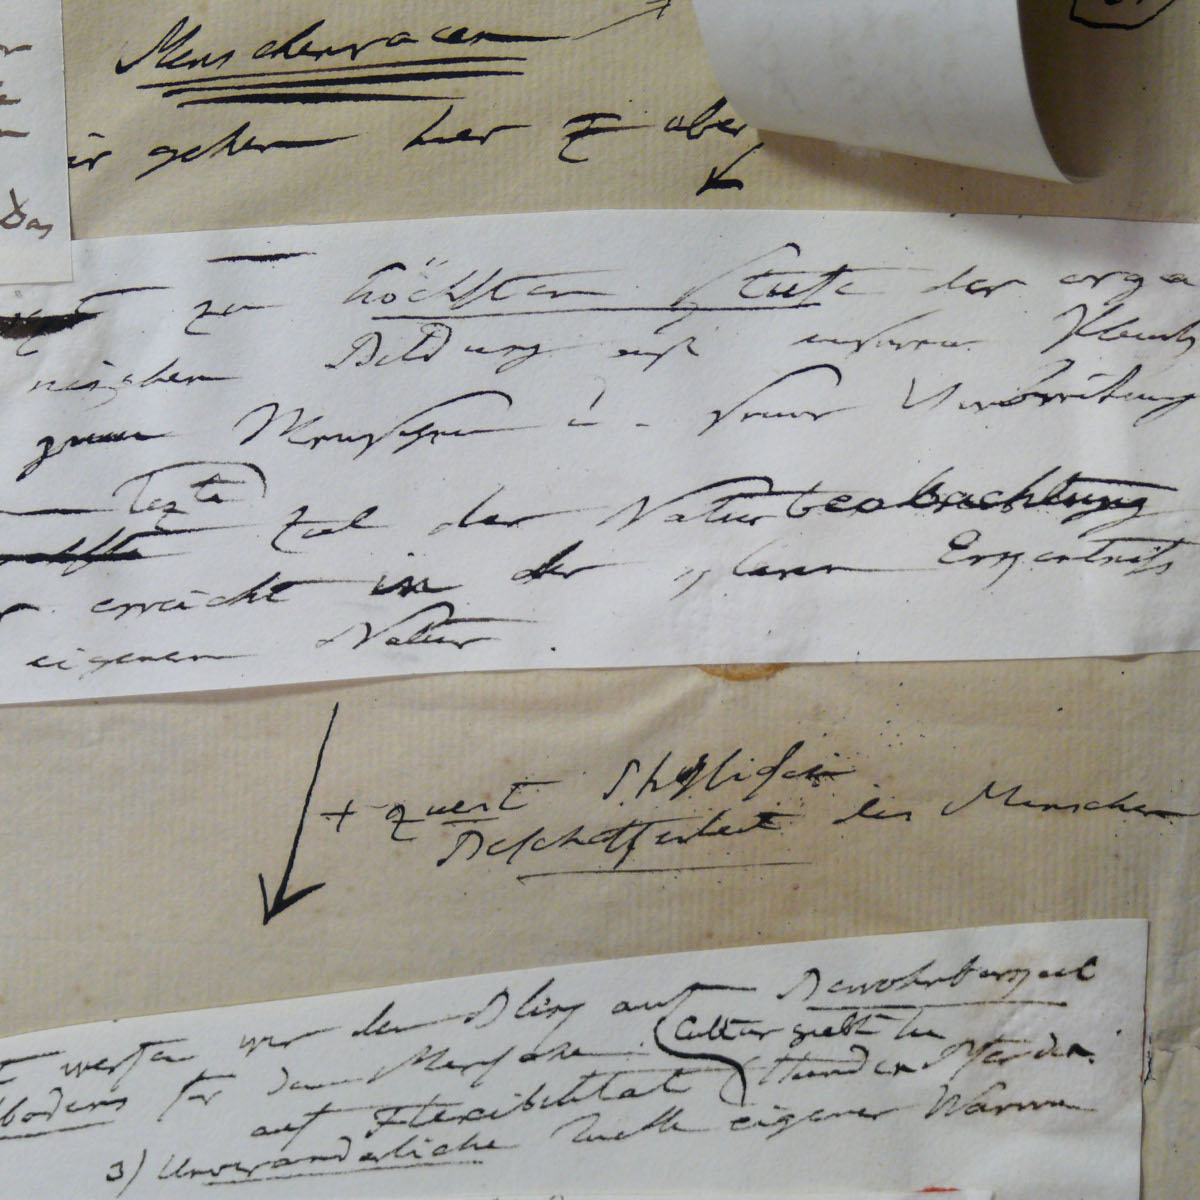 Menschenracen
Das
wir gehen hier z aber
zu höchsten Stufe der orga
nischen Bildung auf unserem
zum Menschen u. seiner Verbreitung
lezte Ziel der Naturbeobachtung
erreicht in der klaren Erkentniß
eigenen Natur.
+ quert Physischen
Beschaffenheit des Menschen
werfen wir den Blick auf Bewohnbarkeit
bodens für den Menschen Cultur giebt
auf Flexibilität Hunden Pferden.
3) Unveränderliche Quelle eigener Wärme